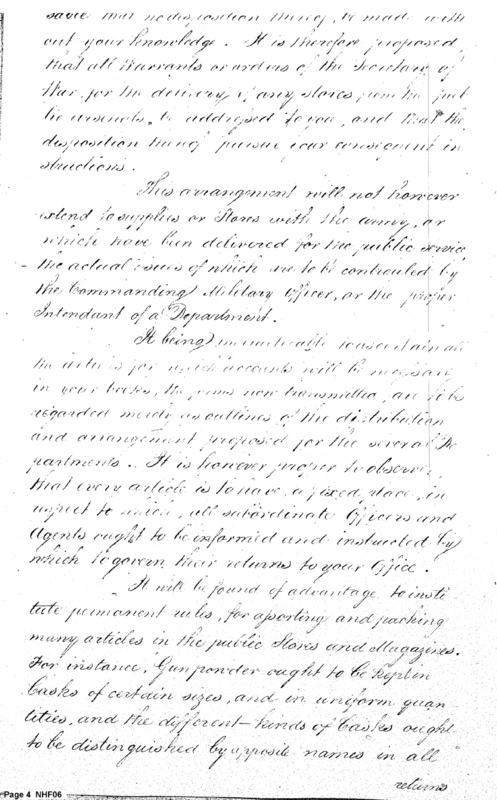 that no disposition thereof, be made with
out your knowledge. It is therefore proposed,
that all Warrants or orders of the Secretary of
War, for the delivery of any stores from the pub
lic arsenals, be addressed to you, and that the
disposition thereof pursue your consequent in
structions.
This arrangement will not however
extend to supplies or Stores with the army, or
which have been delivered for the public service
the actual issues of which are to be controuled by
the Commanding Military Officer, or the proper
Intendant of a Department.
It being impracticable to ascertain all
the details for which accounts will be necessary
in your books, the forms now transmitted, are to be
regarded merely as outlines of the distribution
and arrangement proposed for the several De
partments. It is however proper to observe,
that every article is to have a fixed place, in
respect to which, all subordinate Officers and
Agents ought to be informed and instructed by
which to govern their returns to your Office.
It will be found of advantage to insti
tute permanent rules, for assorting and packing
many articles in the public Stores and Magazines.
For instance, Gunpowder ought to be kept in
Casks of certain sizes, and in uniform quan
tities, and the different kinds of Casks ought
to be distinguished by apposite names in all
returns
Page 4 NHF06